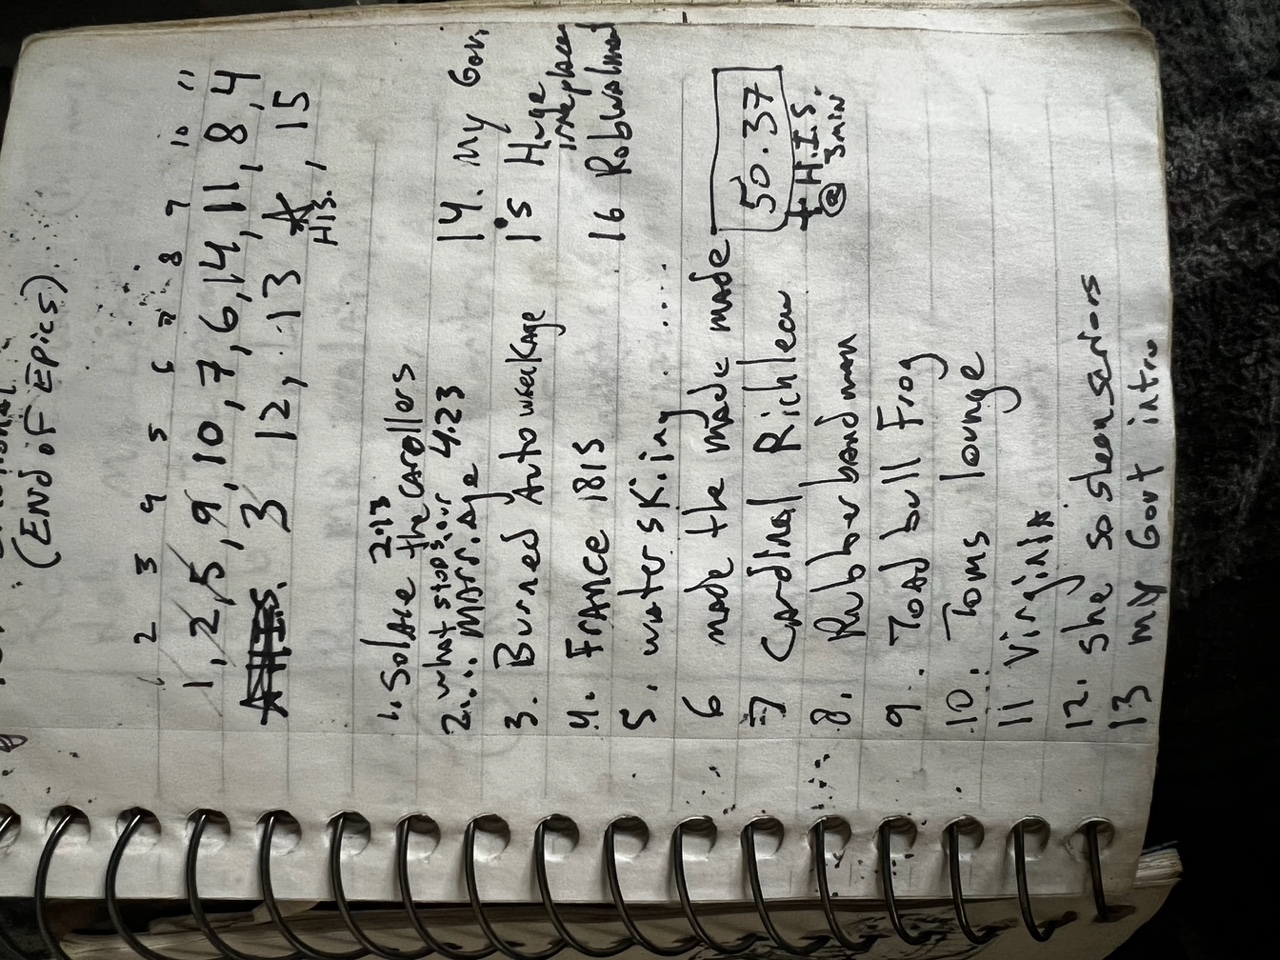 (End of Epics)
1 2 3 4 5 6 7 8 9 10 11
1, 2, 5, 9, 10, 7, 6, 14, 11, 8, 4
3 12, 13 ☆, 15
HIS.
1. Solace 2:13
the carollers
what stops our
2.... Marriage 4.23
3. Burned Autowreckage
4. France 1815
5. waterskiing.....
6 made the made made
7 Cardinal Richleau
8. Rubberbandman
9. Toad bull Frog
10. Toms lounge
11 Virginia
12. she so sheenseniors
13 my Govt intro
14. My Gov.
15 Huge
16 Robwalmart
50.37
+ H.I.S.
@ 3min